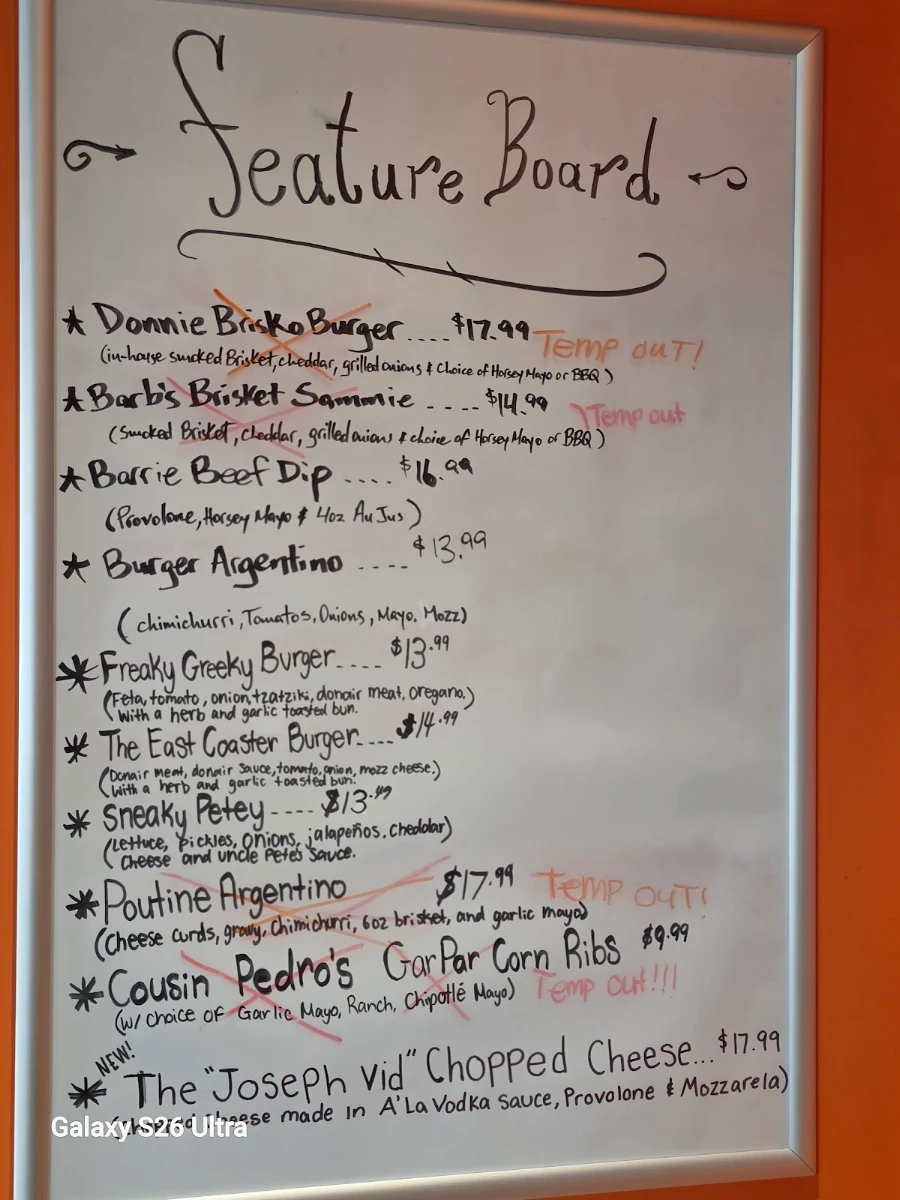 Feature Board
★ Donnie Brisko Burger .... $17.99 Temp out!
(in-house smoked Brisket, cheddar, grilled onions & Choice of Horsey Mayo or BBQ)
★ Barb's Brisket Sammie ---- $14.99 Temp out
(Smoked Brisket, cheddar, grilled onions & choice of Horsey Mayo or BBQ)
★ Barrie Beef Dip .... $16.99
(Provolone, Horsey Mayo & 4oz Au Jus)
★ Burger Argentino ---- $13.99
(chimichurri, Tomatos, Onions, Mayo. Mozz)
* Freaky Greeky Burger---- $13.99
(Feta, tomato, onion, tzatziki, donair meat, oregano.)
With a herb and garlic toasted bun.
* The East Coaster Burger---- $14.99
(Donair meat, donair Sauce, tomato, onion, mozz cheese.)
(With a herb and garlic toasted bun.
* Sneaky Petey ---- $13.49
(Lettuce, pickles, onions, jalapeños, cheddar)
(cheese and uncle Pete's Sauce.
* Poutine Argentino $17.99 Temp OUT!
(Cheese curds, gravy, Chimichurri, 6oz brisket, and garlic mayo)
* Cousin Pedro's GarPar Corn Ribs $9.99
(w/ choice of Garlic Mayo, Ranch, Chipotlé Mayo) Temp out!!!
NEW!
* The "Joseph Vid" Chopped Cheese... $17.99
made in A'La Vodka Sauce, Provolone & Mozzarela)
Galaxy S26 Ultra